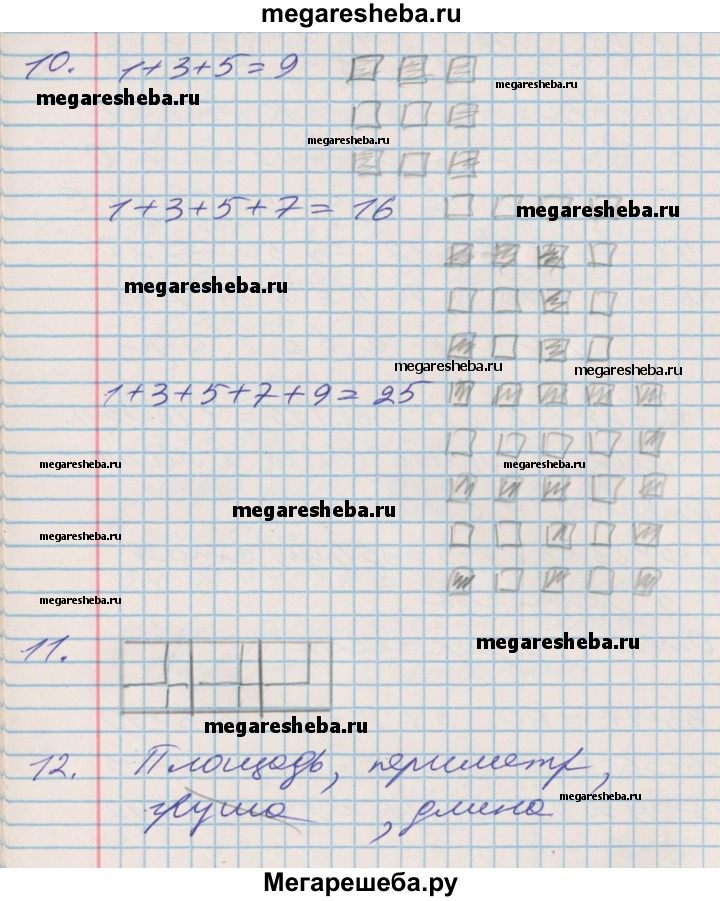 megaresheba.ru
10. 1+3+5=9
megaresheba.ru
megaresheba.ru
megaresheba.ru
1+3+5+7=16
megaresheba.ru
megaresheba.ru
megaresheba.ru
megaresheba.ru
1+3+5+7+9=25
megaresheba.ru
megaresheba.ru
megaresheba.ru
megaresheba.ru
megaresheba.ru
11.
megaresheba.ru
megaresheba.ru
12. Площадь, периметр,
megaresheba.ru
груша, длина
Мегарешеба.ру